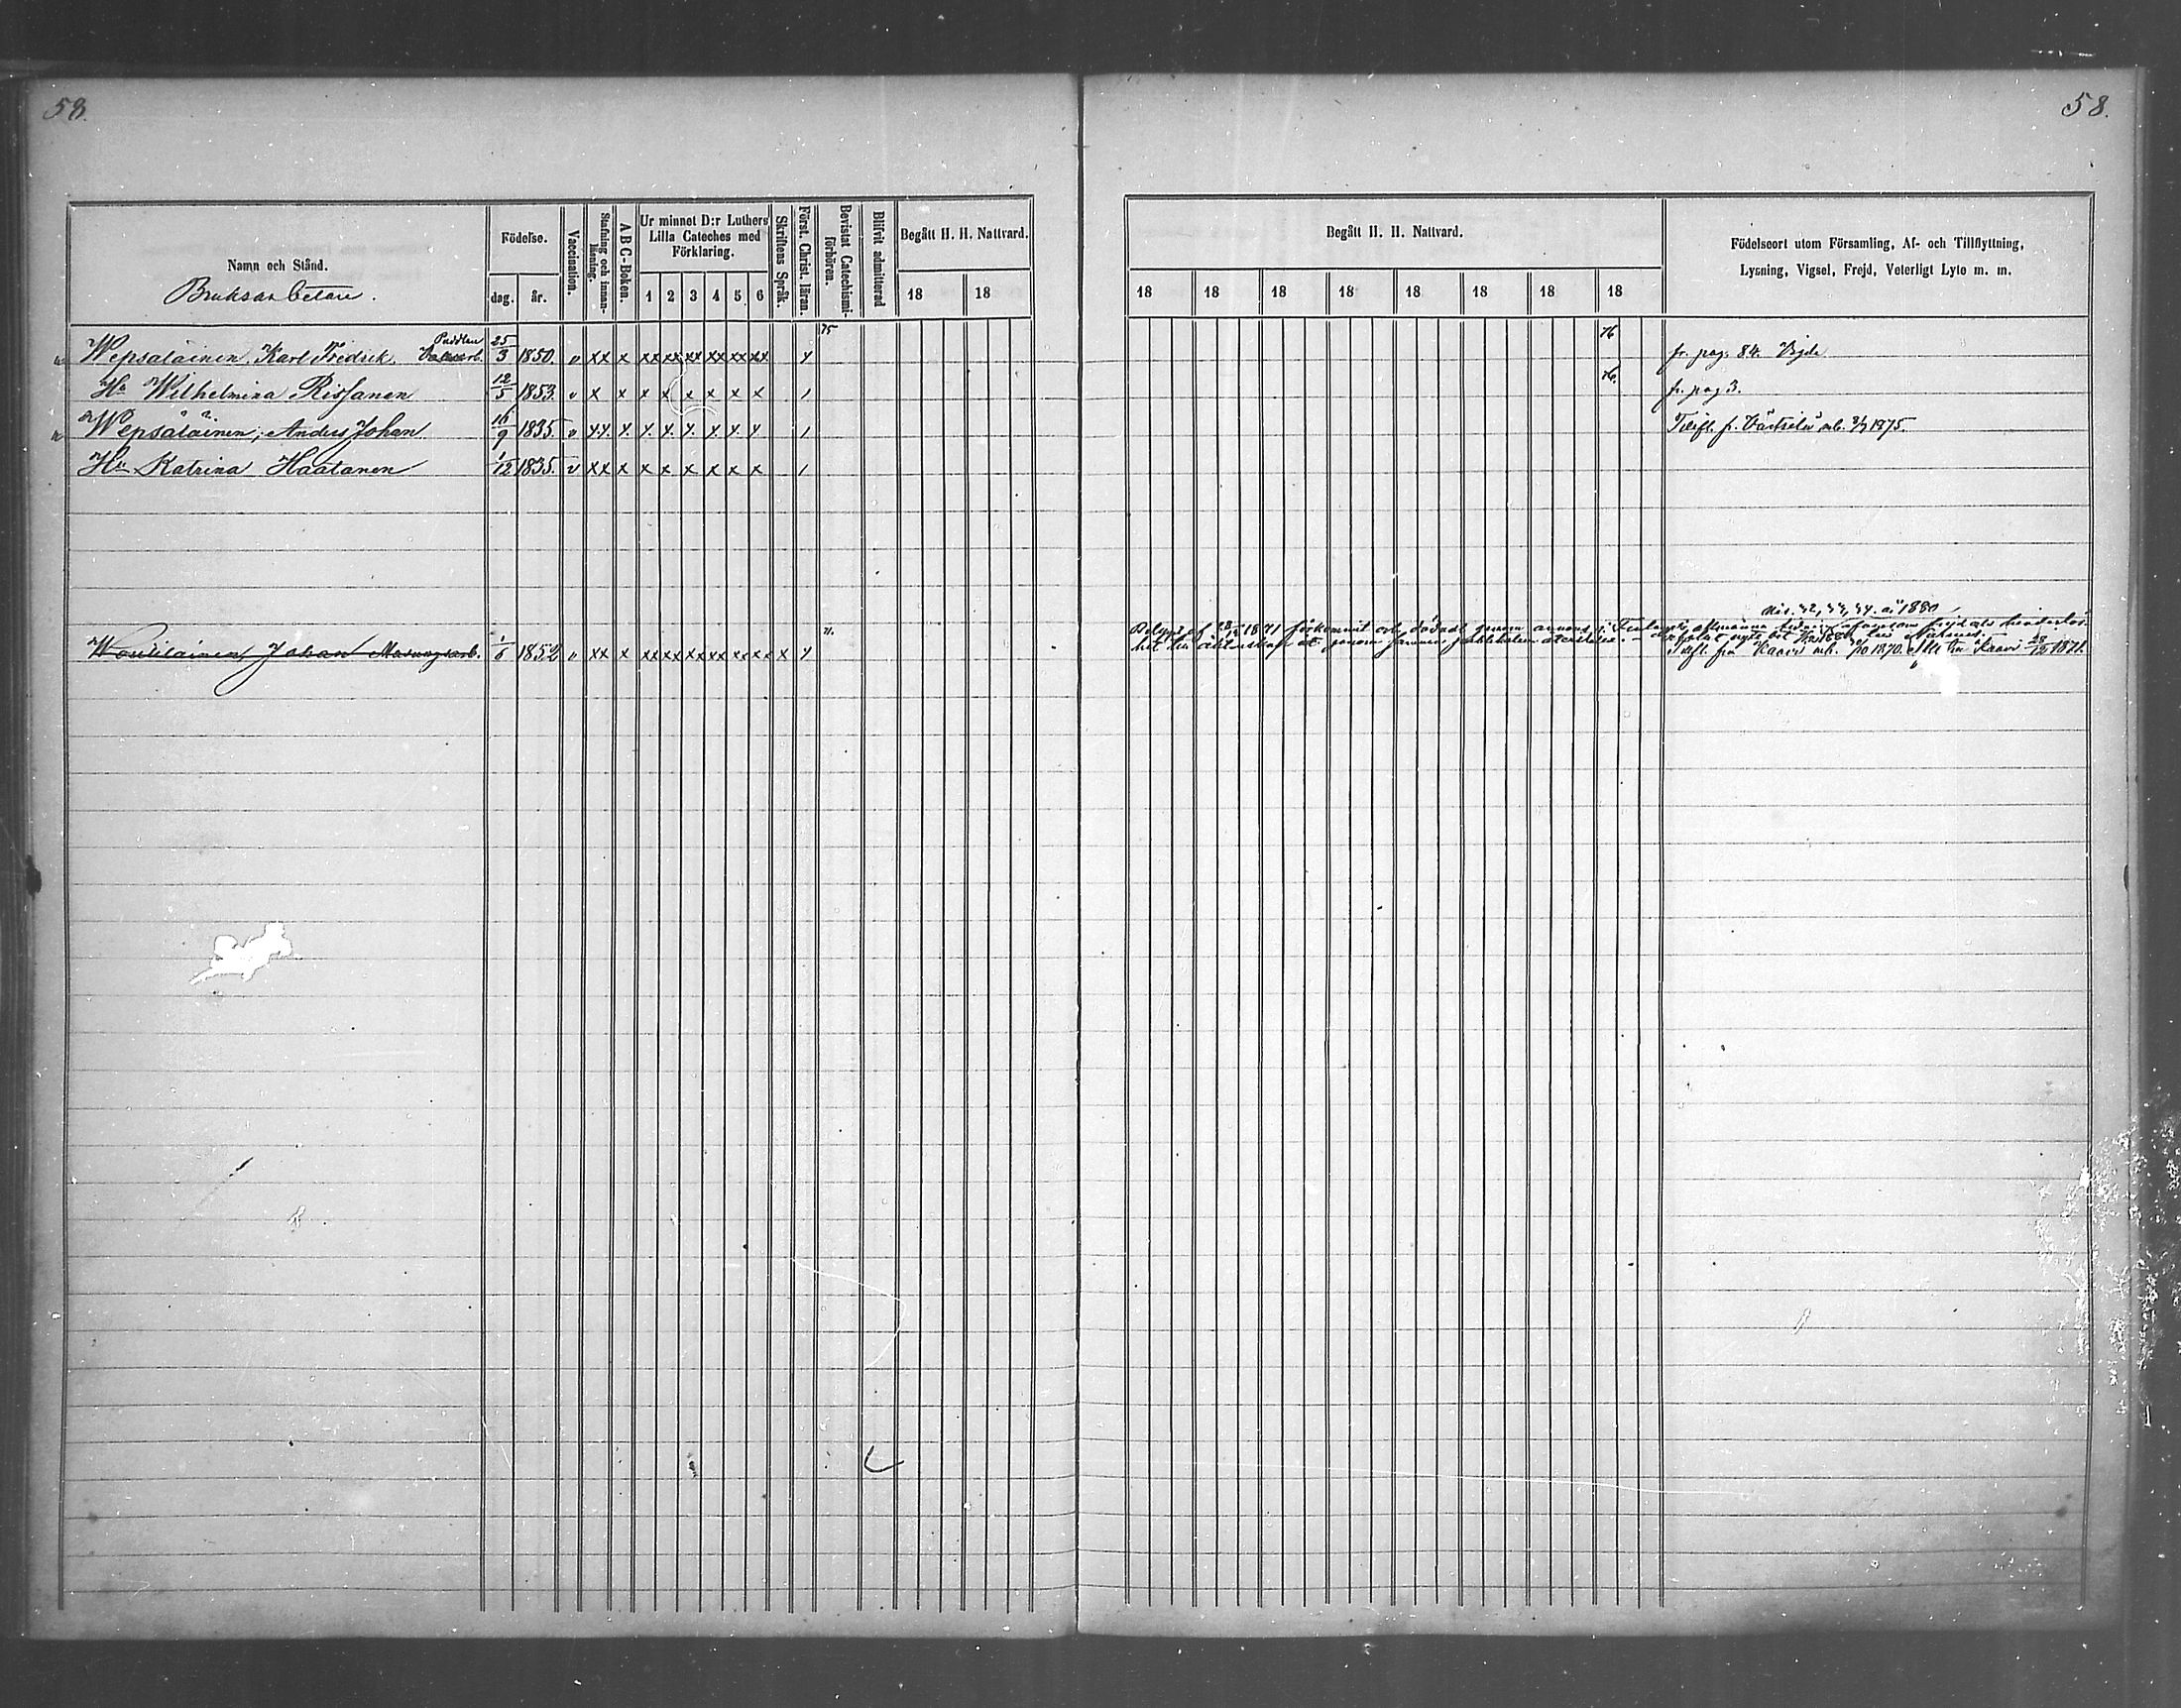 58.
58.
Namn och Stånd.
Bruksarbetare.
Födelse.
dag. år.
Vaccination.
Stafning och innanläsning.
A B C-Boken.
Ur minnet D:r Luthers Lilla Cateches med Förklaring.
1 2 3 4 5 6
Skriftens Språk.
Först. Christ. läran.
Bevistat Catechismiförhören.
Blifvit admitterad
Begått H. H. Nattvard.
18 18
Begått H. H. Nattvard.
18 18 18 18 18 18 18 18
Födelseort utom Församling, Af- och Tillflyttning,
Lysning, Vigsel, Frejd, Veterligt Lyte m. m.
Puddlar
Wepsäläinen, Karl Fredrik. 25/3 1850. v xx x xx xx xx xx xx xx y 75 76 fr. pag. 84.
Hu Wilhelmina Rissanen 12/5 1853. v x x x x x x x x / 76. fr. pag 3.
Wepsäläinen, Anders Johan 16/9 1835. v x.x. x. x. x. x. x. x. x / Tillfl. fr. Värtsilä 1875.
Hu Katrina Haatanen 1/12 1835. v xx x x x x x x x /
32, 33, 34. 1880
1871 förkommit och dödadt genom annons i Finlands Allmänna tidning
Johan Masungsarb. 1/6 1852 v xx x xx xx xx xx xx xx x y 71. Kaavi 1870. Kaavi 28/12 1871.